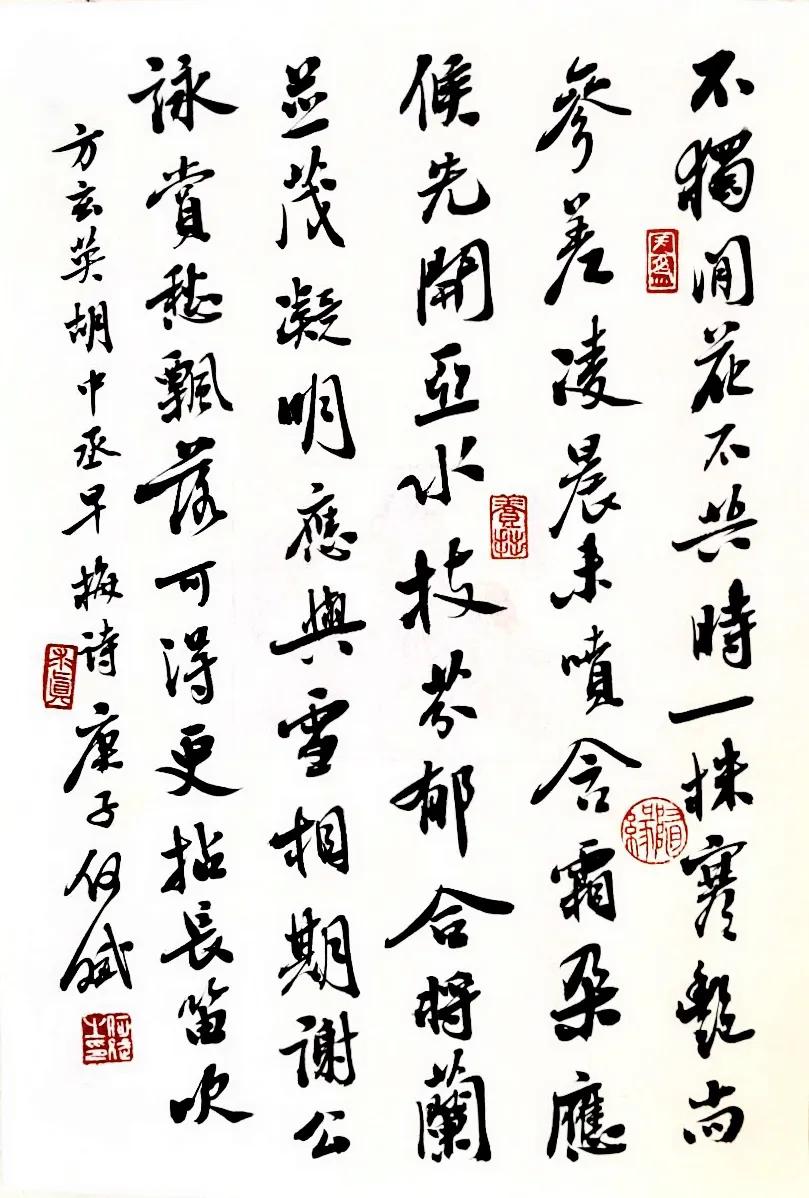 不獨閒花不共時一株寒艷尚
參差凌晨未噴含霜朵應
候先開亞水枝芬郁合將蘭
並茂凝明應與雪相期謝公
詠賞愁飄落可得更拈長笛吹
方玄英胡中丞早梅诗庚子何斌
隨緣
養拙